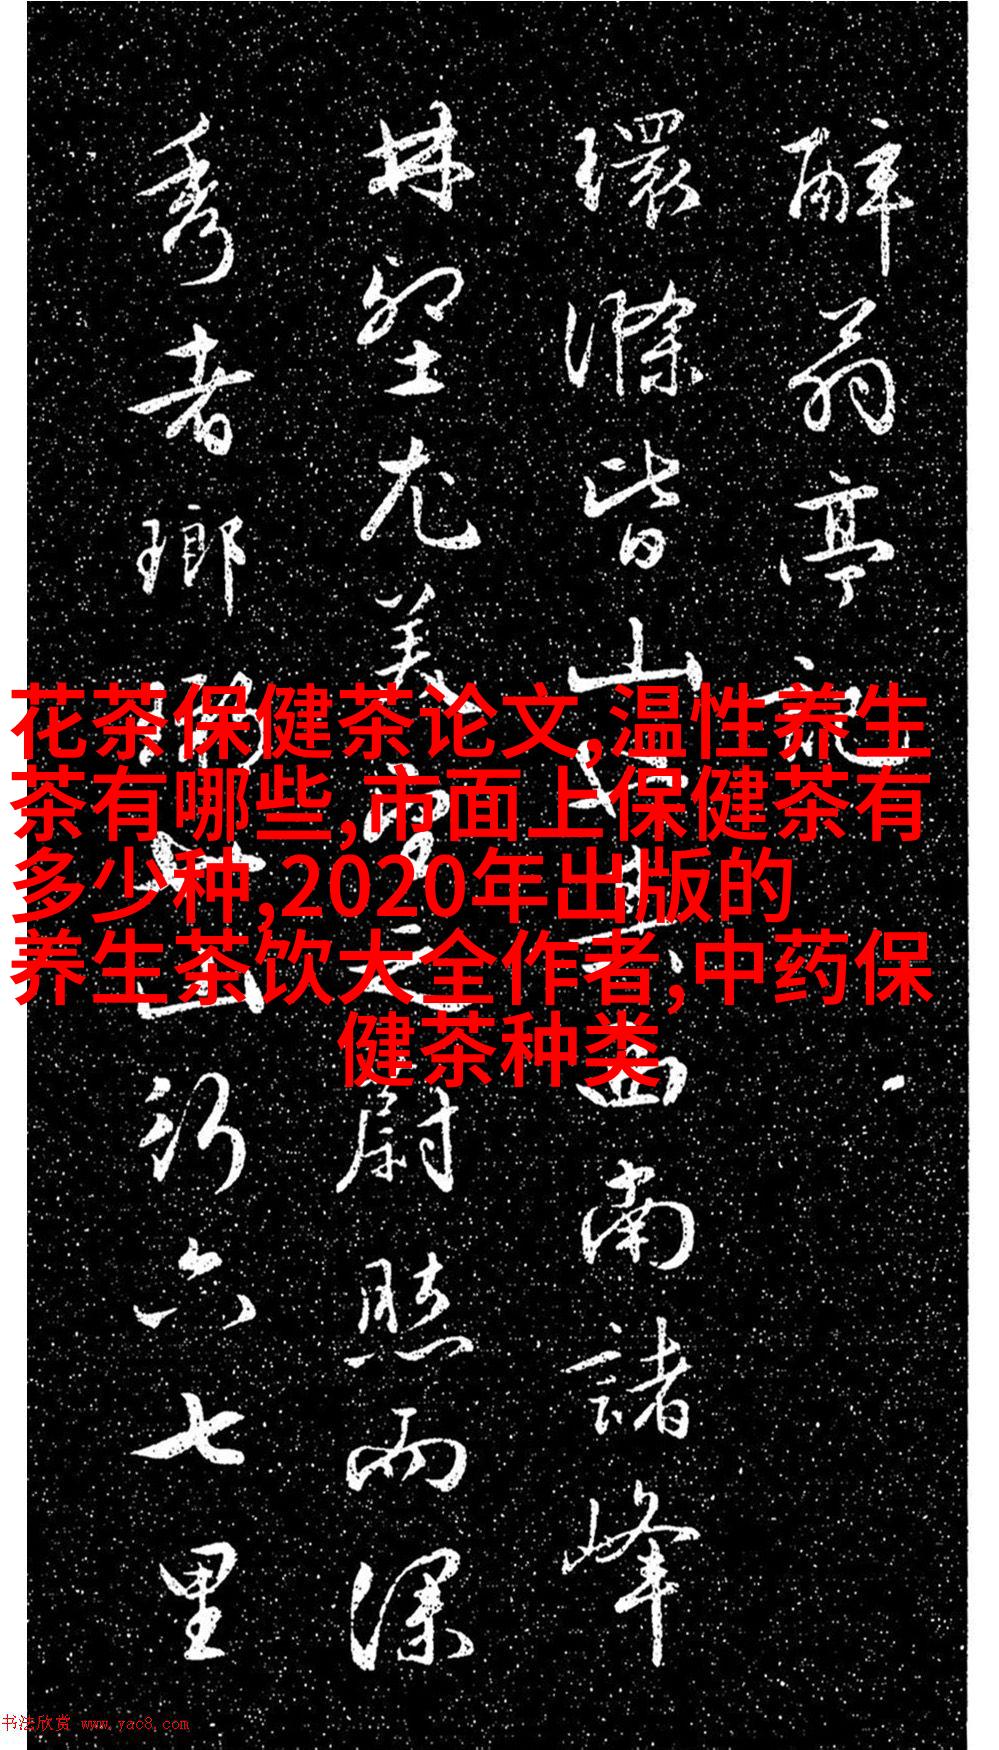 醉翁亭記
環滁皆山也其西南諸峰
林壑尤美望之蔚然而深
秀者瑯琊也山行六七里
花茶保健茶论文,温性养生
茶有哪些,市面上保健茶有
多少种,2020年出版的
养生茶饮大全作者,中药保
健茶种类
书法欣赏 www.yac8.com